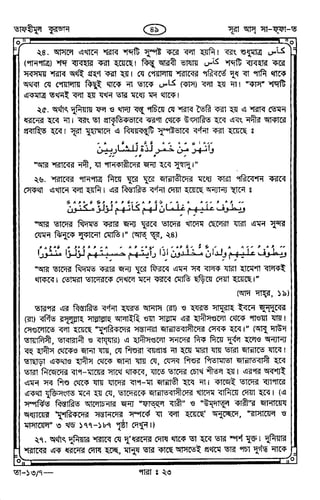 তাফহীমুল কুরআন
৪৯
সূরা আস সা-ফ্ফা-ত
২৪. আসলে এখানে শরাব শব্দটি সুস্পষ্ট করে বলা হয়নি। বরং শুধুমাত্র كأس
(পানপাত্র) শব্দ ব্যবহার করা হয়েছে। কিন্তু আরবী ভাষায় كأس শব্দটি ব্যবহার করে
সবসময় শরাব অর্থই গ্রহণ করা হয়। যে পেয়ালায় শরাবের পরিবর্তে দুধ বা পানি থাকে
অথবা যে পেয়ালায় কিছুই থাকে না তাকে كأس (কাস) বলা হয় না। "কাস" শব্দটি
একমাত্র তখনই বলা হয় যখন তার মধ্যে মদ থাকে।
২৫. অর্থাৎ দুনিয়ায় ফল ও খাদ্য বস্তু পচিয়ে যে শরাব তৈরি করা হয় এ শরাব তেমন
ধরনের হবে না। বরং তা প্রাকৃতিকভাবে ঝরণা থেকে উৎসারিত হবে এবং নদীর আকারে
প্রবাহিত হবে। সূরা মুহাম্মাদে এ বিষয়বস্তুটি সুস্পষ্টভাবে বর্ণনা করা হয়েছে ঃ
وَأَنْهٰرٌ مِّنْ خَمْرٍ لَّذَّةٍ لِّلشّٰرِبِيْنَ
"আর শরাবের নদী, যা পানকারীদের জন্য হবে সুস্বাদু।"
২৬. শরাবের পানপাত্র নিয়ে ঘুরে ঘুরে জান্নাতীদের মধ্যে কারা পরিবেশন করবে
সেকথা এখানে বলা হয়নি। এর বিস্তারিত বর্ণনা দেয়া হয়েছে অন্যান্য স্থানে ঃ
وَيَطُوْفُ عَلَيْهِمْ غِلْمَانٌ لَّهُمْ كَاَنَّهُمْ لُؤْلُؤٌ مَّكْنُوْنٌ
"আর তাদের খিদমত করার জন্য ঘুরবে তাদের খাদেম ছেলেরা যারা এমন সুন্দর
যেমন ঝিনুকে লুকানো মোতি।" (আত্ তূর, ২৪)
وَيَطُوْفُ عَلَيْهِمْ وِلْدَانٌ مُّخَلَّدُوْنَ اِذَا رَاَيْتَهُمْ حَسِبْتَهُمْ لُؤْلُؤًا مَّنْثُوْرًا
"আর তাদের খিদমত করার জন্য ঘুরে ফিরবে এমন সব বালক যারা হামেশা বালকই
থাকবে। তোমরা তাদেরকে দেখলে মনে করবে মোতি ছড়িয়ে দেয়া হয়েছে।"
(আদ দাহর, ১৯)
তারপর এর বিস্তারিত বর্ণনা হযরত আনাস (রা) ও হযরত সামুরাহ ইবনে জুনদুবের
(রা) বর্ণিত রসূলুল্লাহ সাল্লাল্লাহু আলাইহি ওয়া সাল্লাম এর হাদীসগুলো থেকে পাওয়া যায়।
সেগুলোতে বলা হয়েছে "মুশরিকদের সন্তানরা জান্নাতবাসীদের সেবক হবে।" (আবু দাউদ
তায়ালিসী, তাবারানী ও বাযযার) এ হাদীসগুলো সনদের দিক দিয়ে দুর্বল হলেও অন্যান্য
বহু হাদীস থেকেও জানা যায়, যে শিশুরা বয়প্রাপ্ত না হয়ে মারা যায় তারা জান্নাতে যাবে।
তাছাড়া একথাও হাদীস থেকে জানা যায় যে, যেসব শিশুর পিতামাতা জান্নাতবাসী হবে
তারা নিজেদের বাপ-মায়ের সাথে থাকবে, যাতে তাদের চোখ শীতল হয়। এরপর অবশ্যই
এমন সব শিশু থেকে যায় যাদের বাপ-মা জান্নাতী হবে না। কাজেই তাদের ব্যাপারে
একথা যুক্তিসংগত মনে হয় যে, তাদেরকে জান্নাতবাসীদের খাদেম বানিয়ে দেয়া হবে। (এ
সম্পর্কিত বিস্তারিত আলোচনার জন্য "ফাতহুল বারী" ও "উমদাতুল কারী"র জানায়েয
অধ্যায়ের "মুশরিকদের সন্তানদের সম্পর্কে যা বলা হয়েছে" অনুচ্ছেদে, "রাসায়েল ও
মাসায়েল" ৩ খণ্ড ১৭৭-১৮৭ পৃষ্ঠা দেখুন।)
২৭. অর্থাৎ দুনিয়ার শরাবে যে দু'ধরনের দোষ থাকে তা হবে তার স্পর্শ মুক্ত। দুনিয়ার
শরাবের এক ধরনের দোষ হচ্ছে, মানুষ তার কাছে আসতেই প্রথমে তার পচা দুর্গন্ধ নাকে
তা-১৩/৭—
পারা ঃ ২৩